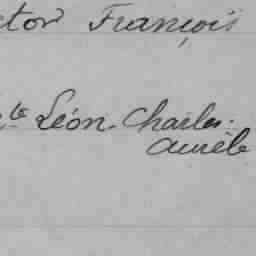 ctor François
te Léon. Charles.
Aurèle